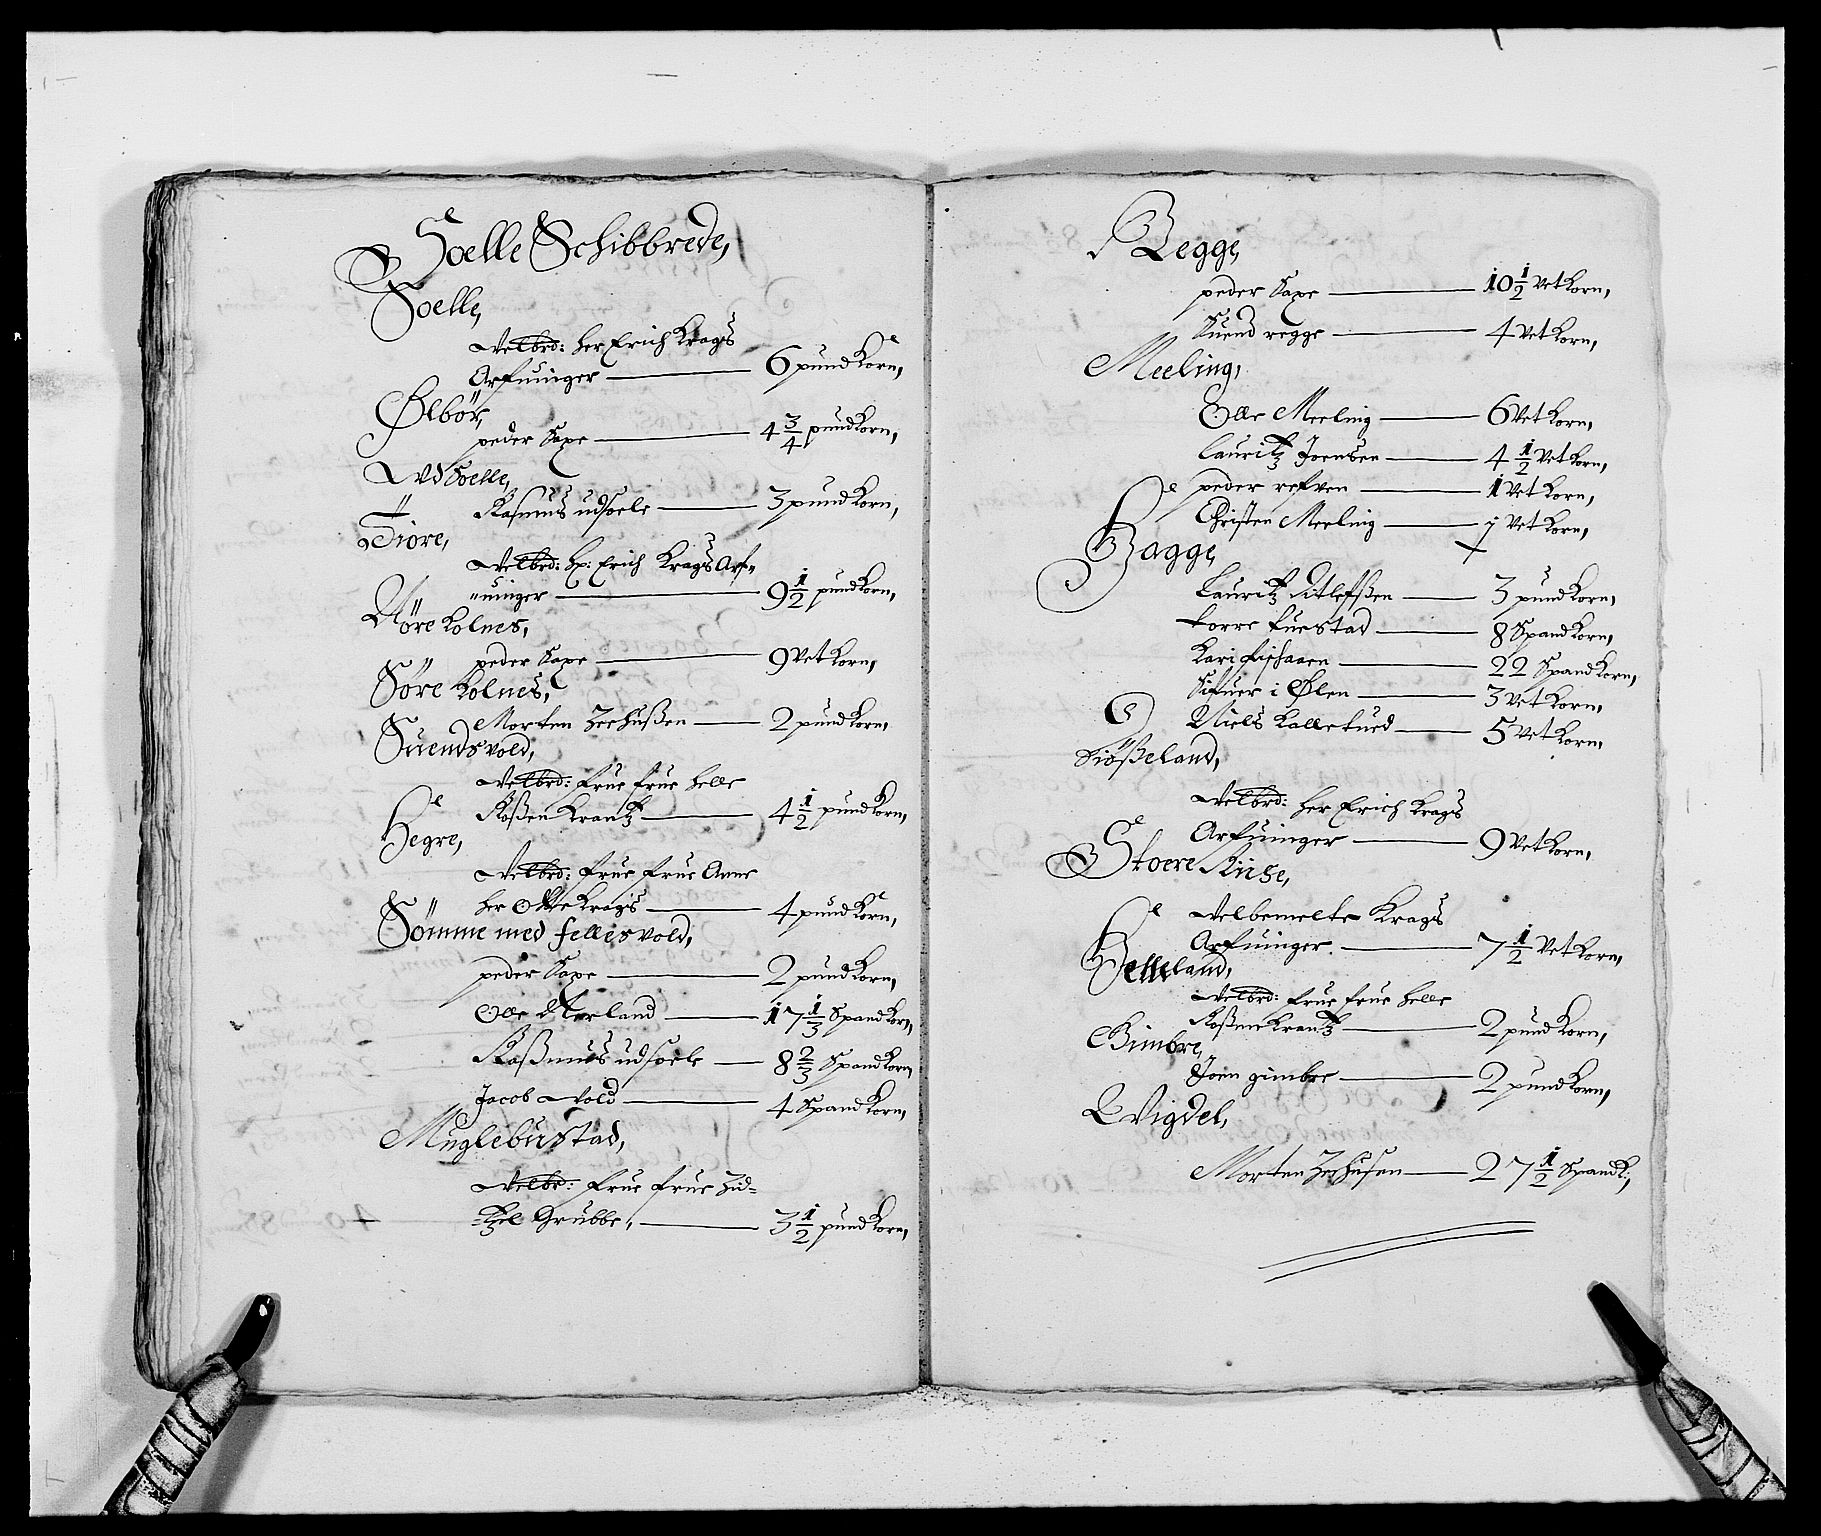 Soelle Schibbrede,
Soelle,
Velbrd: Her Erich Krags
Arfuinger — 6 pund Korn,
Ølbör,
peder Saxe — 4 3/4 pund Korn,
Vdsoelle,
Rasmus udsoele — 3 pund Korn,
Tiöre,
Velbrd: Hr: Erich Krags Arf=
=uinger — 9 1/2 pund Korn,
Nöre Kolnes,
peder Saxe — 9 Vet Korn,
Söre Kolnes,
Morten Zeehußen — 2 pund Korn,
Suendsvold,
Velbrd: frue frue Helle
Roßen Krantz — 4 1/2 pund Korn,
Hegre,
Velbrd: frue frue Anne
her Otte Krags — 4 pund Korn,
Sömme med fellesvold,
peder Saxe — 2 pund Korn,
Olle Aarland — 17 1/3 Spand Korn,
Raßmus udsoele — 8 2/3 Spand Korn
Jacob Vold — 4 Spand Korn,
Mugleburstad,
Velbr: frue frue Zid=
=tzel Grubbe, — 3 1/2 pund Korn,
Regge,
peder Saxe — 10 1/2 Vet Korn,
Suend regge — 4 Vet Korn,
Meeling,
Olle Meeling — 6 Vet Korn,
Lauritz Joensen — 4 1/2 Vet Korn,
peder refven — 1 Vet Korn,
Christen Meeling — 1 Vet Korn,
Hagge,
Lauritz Ditlefsßen — 3 pund Korn,
torre tuestad — 8 Spand Korn,
Kari fishaaen — 22 Spand Korn,
Sifuer i Ølen — 3 Vet Korn,
Niels Kalletued — 5 Vet Korn,
Siößeland,
Velbrd: Her Erich Krags
Arfuinger — 9 Vet Korn,
Stoere Riise,
Velbemelte Krags
Arfuinger — 7 1/2 Vet Korn,
Helleland,
Velbrd: frue frue Helle
Roßenkrantz — 2 pund Korn,
Gimbre,
Joen gimbre — 2 pund Korn,
Vigdel,
Morten Zeehusen — 27 1/2 Spand K:,